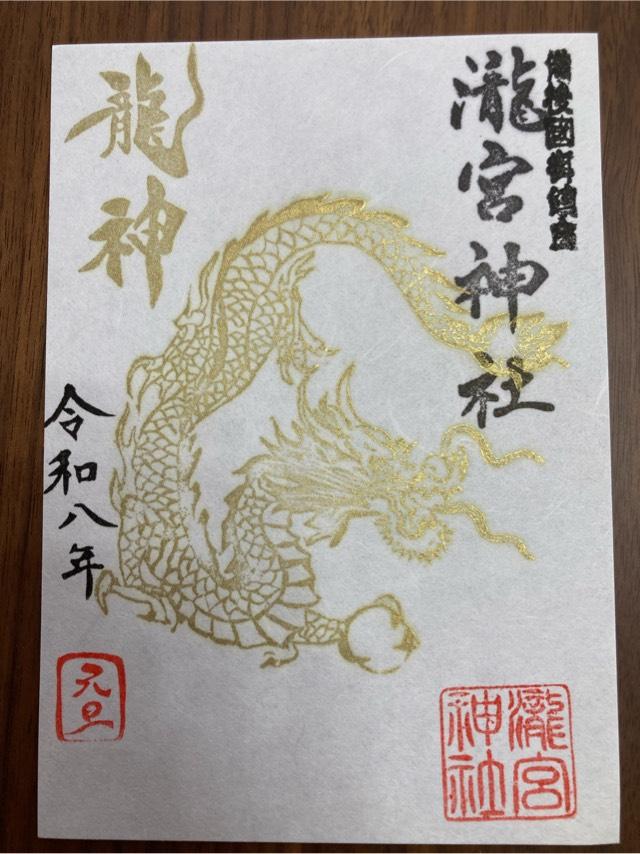 備後國御鎮座
瀧宮神社
龍神
令和八年
元旦
瀧宮
神社